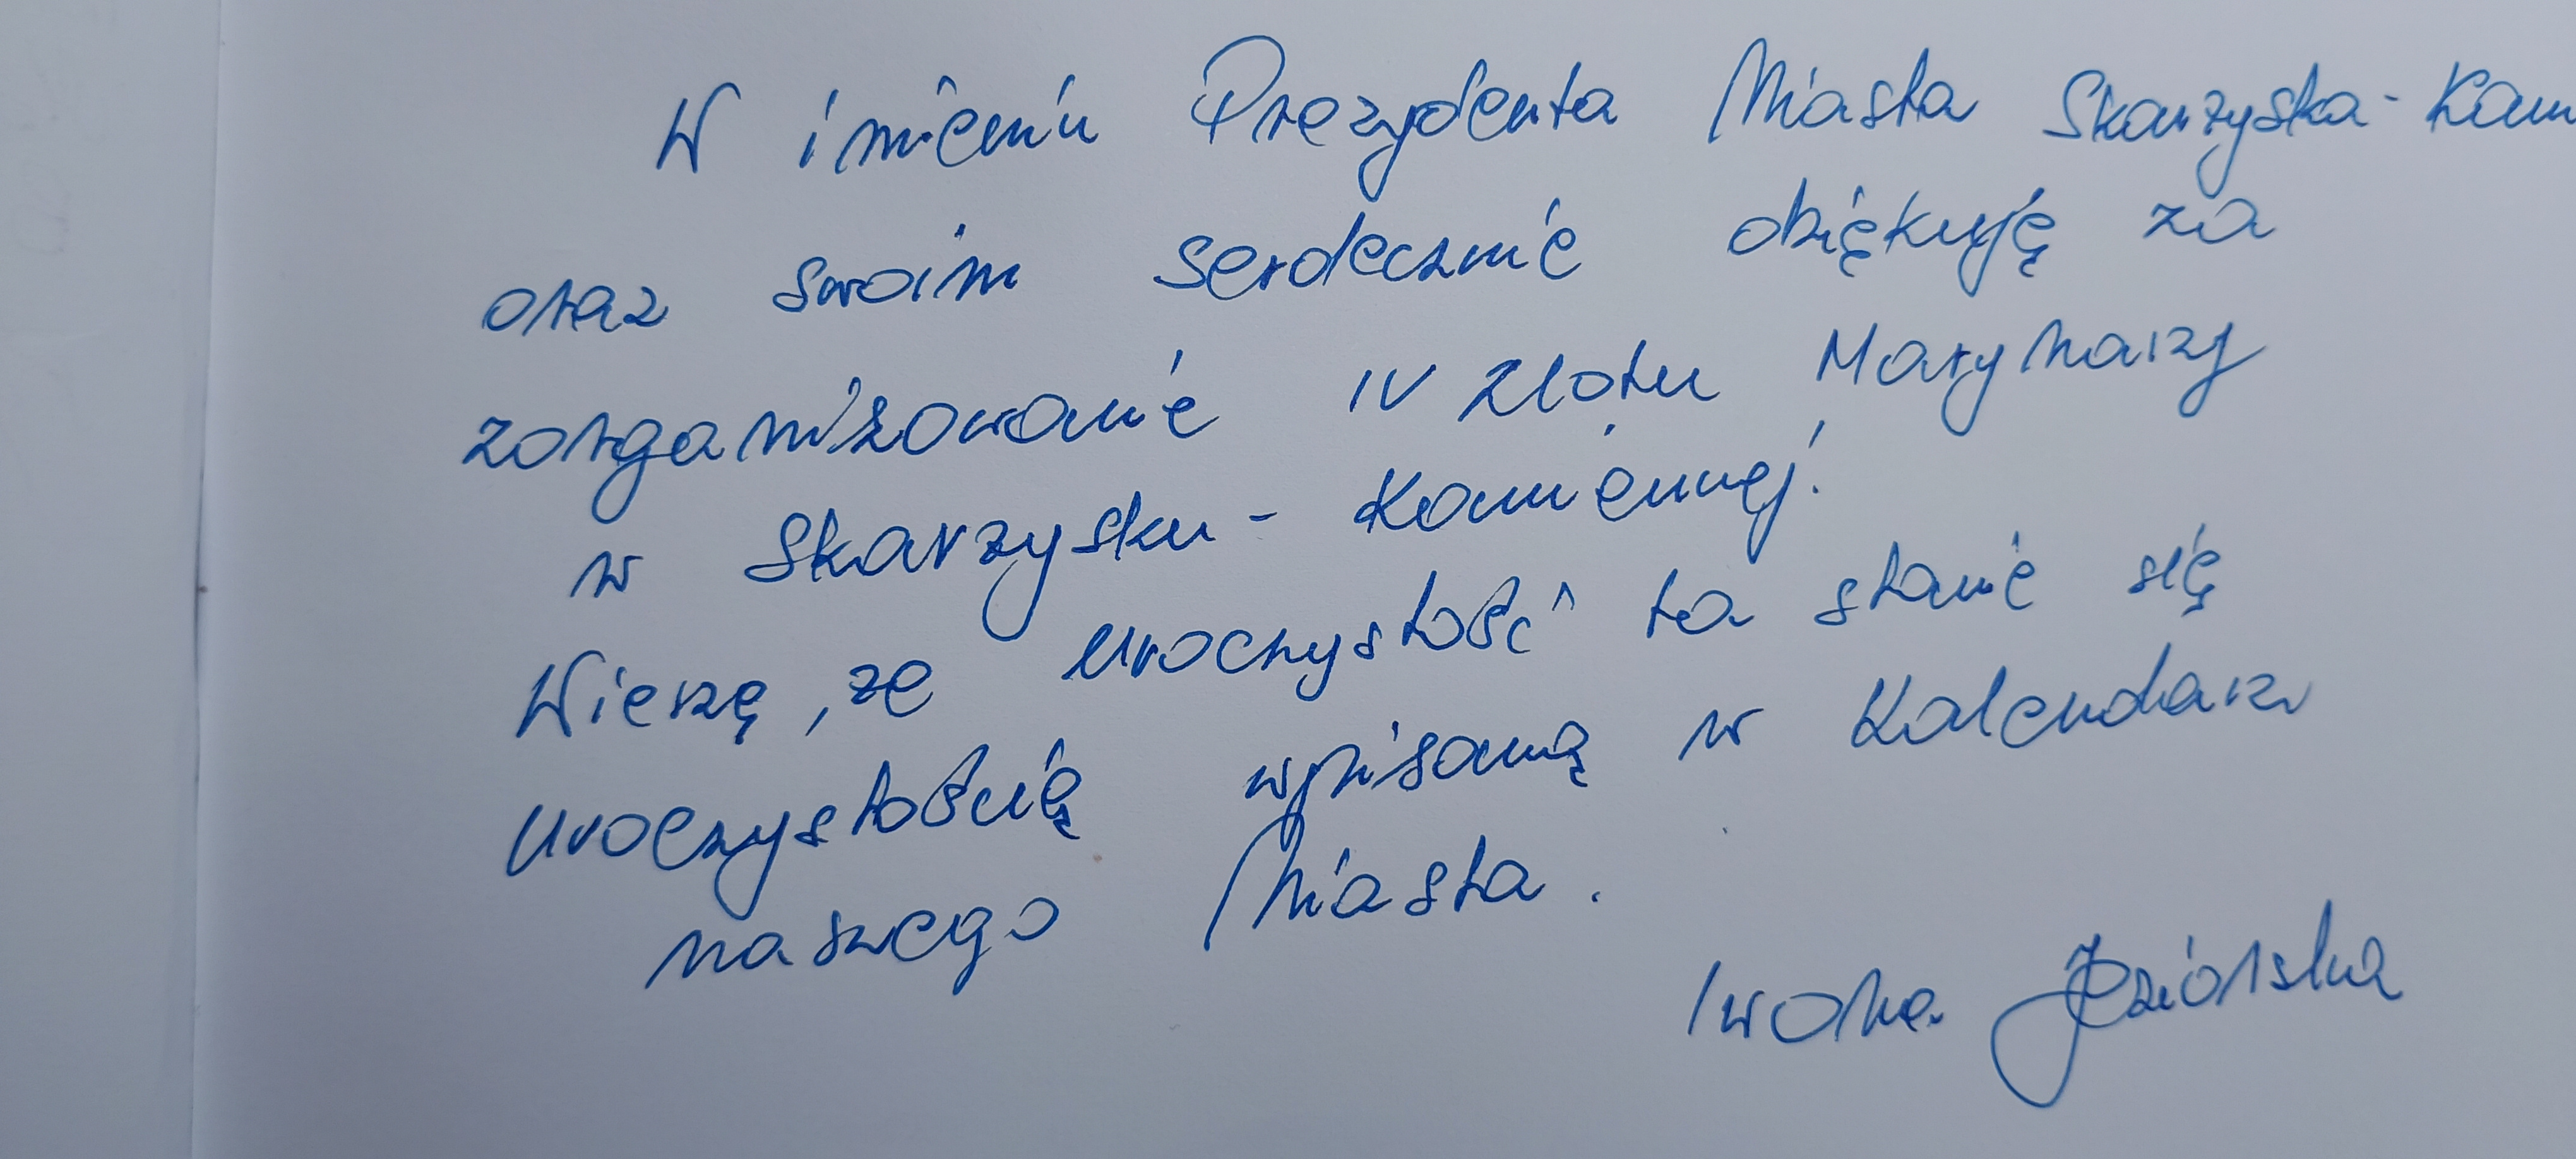 W imieniu Prezydenta Miasta Skarżyska-Kam
oraz swoim serdecznie dziękuję za
zorganizowanie IV Zlotu Marynarzy
w Skarżysku-Kamiennej!
Wierzę, że uroczystość ta stanie się
uroczystością wpisaną w Kalendarz
naszego Miasta.
Iwona